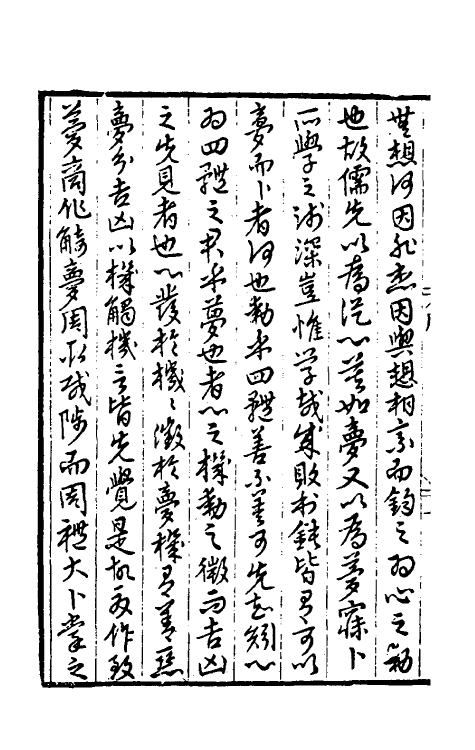 無想何因非想因與想相而鈞之為心之動
也故儒先以為從心莫如夢又以為夢寐卜
所學之淺深豈惟學哉成敗利鈍皆有可以
夢而卜者何也動乎四體善不善可先知矧心
為四體之君乎夢也者心之機動之徵而吉凶
之先見者也心發於機〻徵於夢機有善惡
夢分吉凶以機觸機皆先覺是故夏作致
夢商作觭夢周作咸陟而周禮大卜掌之